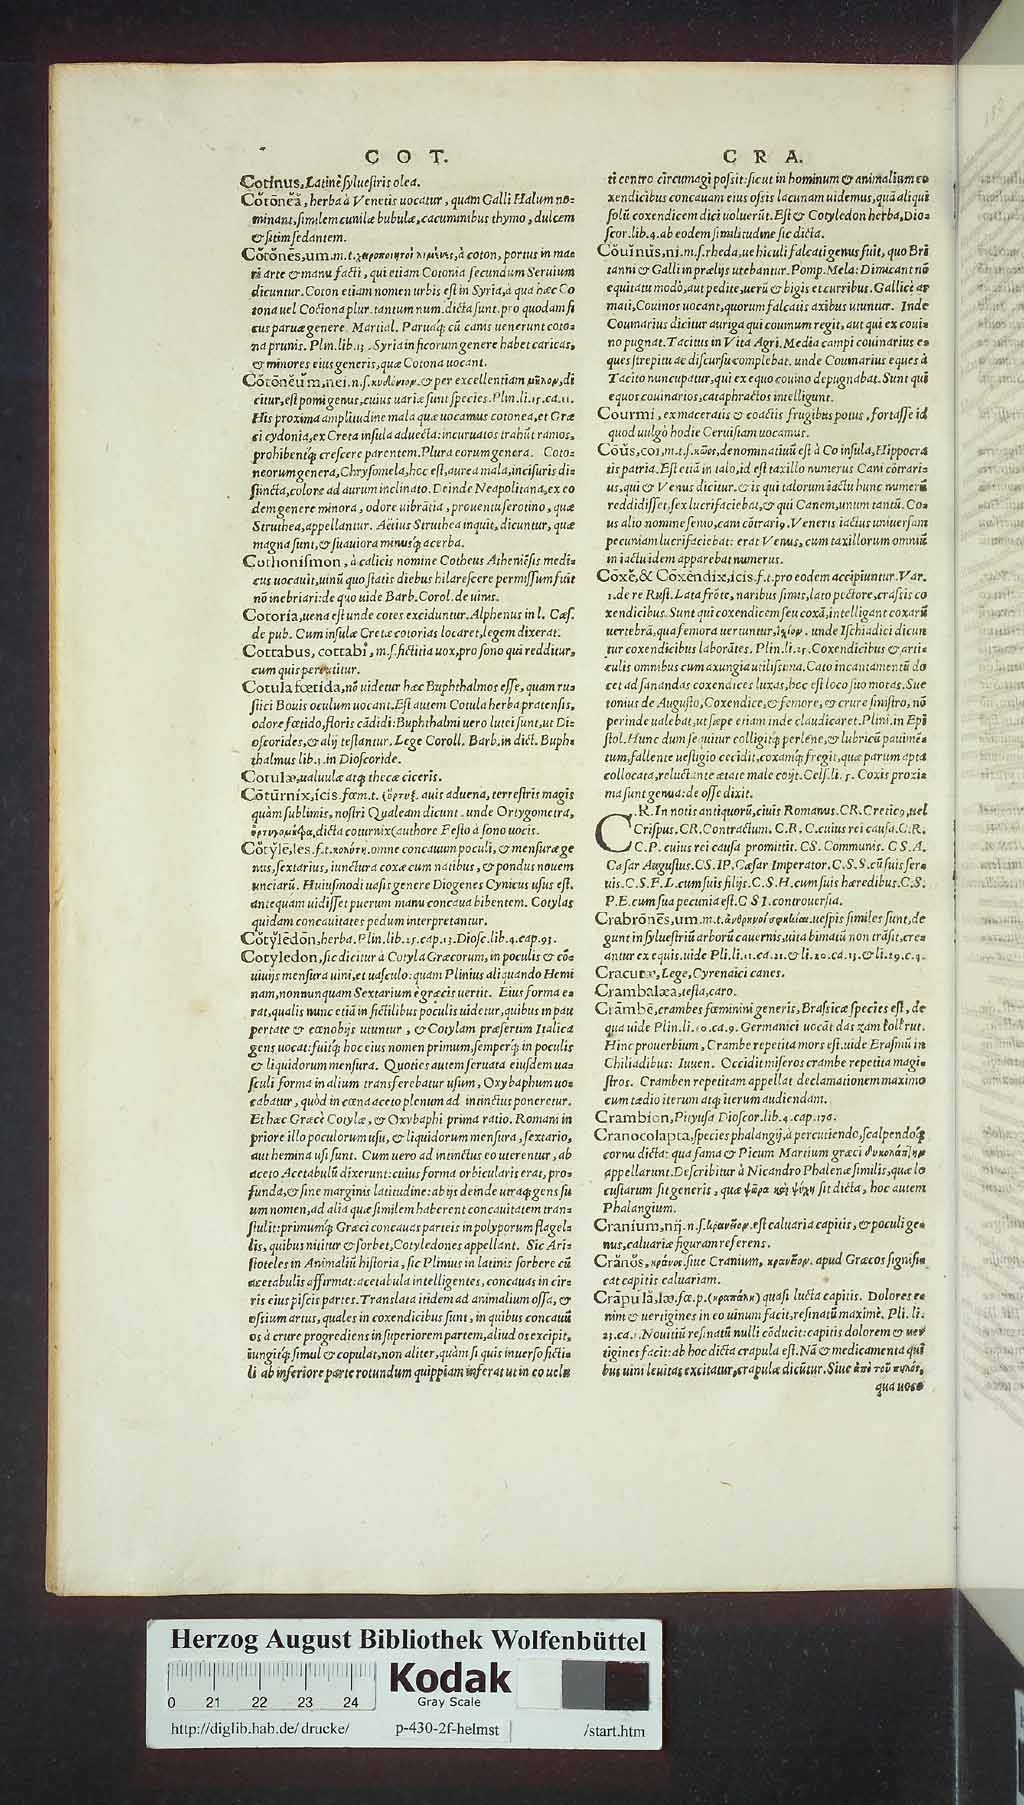 C O T.
Cotinus, Latinè ſylueſtris olea.
Cŏtōnĕă, herba à Venetis uocatur, quam Galli Halum no-
minant, ſimilem cunilæ bubulæ, cacuminibus thymo, dulcem
& ſitim ſedantem.
Cŏtōnēs, um. m. t. χειροποιητοὶ λιμένες, à coton, portus in ma-
ri arte & manu facti, qui etiam Cotonia ſecundum Seruium
dicuntur. Coton etiam nomen urbis eſt in Syria, à qua hæc Co
tona uel Coctiona plur. tantum num. dicta ſunt. pro quodam fi
cus paruæ genere. Martial. Paruaq́; cũ canis uenerunt coto-
na prunis. Plin. lib. 13. Syria in ficorum genere habet caricas,
& minores eius generis, quæ Cotona uocant.
Cŏtōnĕum, nei. n. ſ. κυδώνιον. & per excellentiam μῆλον, di
citur, eſt pomi genus, cuius uariæ ſunt ſpecies. Plin. li. 15. ca. 11.
His proxima amplitudine mala quæ uocamus cotonea, et Græ
ci cydonia, ex Creta inſula aduecta: incuruatos trahũt ramos,
prohibentq́; creſcere parentem. Plura eorum genera. Coto-
neorum genera, Chryſomela, hoc eſt, aurea mala, inciſuris di-
ſtincta, colore ad aurum inclinato. Deinde Neapolitana, ex eo
dem genere minora, odore uibrātia, prouentu ſerotino, quæ
Struthea, appellantur. Actius Struthea inquit, dicuntur, quæ
magna ſunt, & ſuauiora minusq́; acerba.
Cothoniſmon, à calicis nomine Cotheus Atheniẽſis medi-
cus uocauit, uinũ quo ſtatis diebus hilareſcere permiſſum fuit
nō inebriari: de quo uide Barb. Corol. de uinis.
Cotoria, uena eſt unde cotes exciduntur. Alphenus in l. Cæſ.
de pub. Cum inſulæ Cretæ cotorias locaret, legem dixerat.
Cottabus, cottabi, m. ſ. fictitia uox, pro ſono qui redditur,
cum quis percutitur.
Cotula fœtida, nō uidetur hæc Buphthalmos eſſe, quam ru-
ſtici Bouis oculum uocant. Eſt autem Cotula herba pratenſis,
odore fœtido, floris cādidi: Buphthalmi uero lutei ſunt, ut Di-
oſcorides, & alij teſtantur. Lege Coroll. Barb. in dict. Buph-
thalmus lib. 3. in Dioſcoride.
Cotulæ, ualuulæ atq; thecæ ciceris.
Cōtūrnix, icis. fœm. t. ὄρτυξ. auis aduena, terreſtris magis
quàm ſublimis, noſtri Qualeam dicunt. unde Ortygometra,
ὀρτυγομήτρα, dicta coturnix (authore Feſto à ſono uocis.
Cŏtўlē, les. f. t. κοτύλη. omne concauum poculi, & menſuræ ge
nus, ſextarius, iunctura coxæ cum natibus, & pondus nouem
unciarũ. Huiuſmodi uaſis genere Diogenes Cynicus uſus eſt.
antequam uidiſſet puerum manu concaua bibentem. Cotylas
quidam concauitates pedum interpretantur.
Cŏtўlēdōn, herba. Plin. lib. 25. cap. 13. Dioſc. lib. 4. cap. 93.
Cotyledon, ſic dicitur à Cotyla Græcorum, in poculis & cō-
uiuijs menſura uini, et uaſculo: quam Plinius aliquando Hemi
nam, nonnunquam Sextarium è græcis uertit. Eius forma e-
rat, qualis nunc etiā in fictilibus poculis uidetur, quibus in pau
pertate & cœnobijs utuntur, & Cotylam præſertim Italica
gens uocat: fuitq́; hoc eius nomen primum, ſemperq́; in poculis
& liquidorum menſura. Quoties autem ſeruata eiuſdem ua-
ſculi forma in alium transferebatur uſum, Oxybaphum uo-
cabatur, quòd in cœna aceto plenum ad intinctus poneretur.
Et hæc Græcè Cotylæ, & Oxybaphi prima ratio. Romani in
priore illo poculorum uſu, & liquidorum menſura, ſextario,
aut hemina uſi ſunt. Cum uero ad intinctus eo uterentur, ab
aceto Acetabulũ dixerunt: cuius forma orbicularis erat, pro-
funda, & ſine marginis latitudine: ab ijs deinde utraq; gens ſu
um nomen, ad alia quæ ſimilem haberent concauitatem tran-
ſtulit: primumq́; Græci concauas parteis in polyporum flagel-
lis, quibus nititur & ſorbet, Cotyledones appellant. Sic Ari-
ſtoteles in Animaliũ hiſtoria, ſic Plinius in latinis ſorbere cũ
acetabulis affirmat: acetabula intelligentes, concauas in cir-
ris eius piſcis partes. Translata itidem ad animalium oſſa, &
oſſium artus, quales in coxendicibus ſunt, in quibus concauũ
os à crure progrediens in ſuperiorem partem, aliud os excipit,
iungitq́; ſimul & copulat, non aliter, quàm ſi quis inuerſo ficti-
li ab inferiore parte rotundum quippiam inferat ut in eo uel-
C R A.
ti centro circumagi poſsit: ſicut in hominum & animalium co
xendicibus concauam eius oſsis lacunam uidemus, quā aliqui
ſolũ coxendicem dici uoluerũt. Eſt & Cotyledon herba, Dio-
ſcor. lib. 4. ab eodem ſimilitudine ſic dicta.
Cŏuīnŭs, ni. m. ſ. rheda, uehiculi falcati genus fuit, quo Bri
tanni & Galli in prælijs utebantur. Pomp. Mela: Dimicant nō
equitatu modò, aut pedite, uerũ & bigis et curribus. Gallicè ar
mati, Couinos uocant, quorum falcatis axibus utuntur. Inde
Couinarius dicitur auriga qui couinum regit, aut qui ex coui-
no pugnat. Tacitus in Vita Agri. Media campi couinarius e-
ques ſtrepitu ac diſcurſu complebat. unde Couinarius eques à
Tacito nuncupatur, qui ex equo couino depugnabat. Sunt qui
equos couinarios, cataphractos intelligunt.
Courmi, ex maceratis & coactis frugibus potus, fortaſſe id
quod uulgò hodie Ceruiſiam uocamus.
Cŏŭs, coi, m. t. ſ. κῶος, denominatiuũ eſt à Co inſula, Hippocra
tis patria. Eſt etiā in talo, id eſt taxillo numerus Cani cōtrari-
us, qui & Venus dicitur. & is qui talorum iactu hunc numerũ
reddidiſſet, ſex lucrifaciebat, & qui Canem, unum tantũ. Co-
us alio nomine ſenio, cani cōtrari9. Veneris iactus uniuerſam
pecuniam lucrifaciebat: erat Venus, cum taxillorum omniũ
in iactu idem apparebat numerus.
Cōxĕ, & Cōxēndix, icis. f. t. pro eodem accipiuntur. Var.
1. de re Ruſt. Lata frōte, naribus ſimis, lato pectore, craſsis co
xendicibus. Sunt qui coxendicem ſeu coxā, intelligant coxarũ
uertebrā, qua femora uertuntur, ἰσχίον. unde Iſchiadici dicun
tur coxendicibus laborātes. Plin. li. 25. Coxendicibus & arti-
culis omnibus cum axungia utiliſsima. Cato incantamentũ do
cet ad ſanandas coxendices luxas, hoc eſt loco ſuo motas. Sue
tonius de Auguſto, Coxendice, & femore, & crure ſiniſtro, nō
perinde ualebat, ut ſæpe etiam inde claudicaret. Plini. in Epi
ſtol. Hunc dum ſequitur colligitq́; perlene, & lubricũ pauimẽ-
tum, fallente ueſtigio cecidit, coxamq́; fregit, quæ parum apta
collocata, reluctante ætate male coijt. Celſ. li. 5. Coxis proxi-
ma ſunt genua: de oſſe dixit.
C.R. In notis antiquorũ, ciuis Romanus. CR. Cretic9, uel
Criſpus. CR. Contractum. C. R. C. cuius rei cauſa. C. R.
C. P. cuius rei cauſa promittit. CS. Communis. C S. A.
Cæſar Auguſtus. CS. IP. Cæſar Imperator. C. S. S. cũ ſuis ſer-
uis. C. S. F. L. cum ſuis filijs. C. S. H. cum ſuis hæredibus. C. S.
P. E. cum ſua pecunia eſt. C S I. controuerſia.
Crabrōnēs, um. m. t. ἀνθρηνοί σφηκίαι. ueſpis ſimiles ſunt, de
gunt in ſylueſtriũ arborũ cauernis, uita bimatũ non trāſit, cre-
antur ex equis. uide Pli. li. 11. ca. 21. & li. 20. ca. 13. & li. 29. c. 4.
Cracutæ, Lege, Cyrenaici canes.
Crambalæa, teſta, caro.
Crāmbē, crambes fœminini generis, Braſsicæ ſpecies eſt, de
qua uide Plin. li. 20. ca. 9. Germanici uocāt das zam kolkrut.
Hinc prouerbium, Crambe repetita mors eſt. uide Eraſmũ in
Chiliadibus: Iuuen. Occidit miſeros crambe repetita magi-
ſtros. Cramben repetitam appellat declamationem maximo
cum tædio iterum atq; iterum audiendam.
Crambion, Pityuſa Dioſcor. lib. 4. cap. 170.
Cranocolapta, ſpecies phalangij, à percutiendo, ſcalpendoq́;
cornu dicta: qua fama & Picum Martium græci
appellarunt. Deſcribitur à Nicandro Phalenæ ſimilis, quæ lo
cuſtarum ſit generis, quæ ψῶρα καὶ ψύχη ſit dicta, hoc autem
Phalangium.
Cranium, nij. n. ſ. κρανίον. eſt caluaria capitis, & poculi ge-
nus, caluariæ figuram referens.
Crānŏs, κράνος. ſiue Cranium, κρανίον. apud Græcos ſignifi-
cat capitis caluariam.
Crāpŭlă, læ. fœ. p. (κραιπάλη) quaſi lucta capitis. Dolores e-
nim & uertigines in eo uinum facit, reſinatũ maximè. Pli. li.
23. ca. 1. Nouitiũ reſinatũ nulli cōducit: capitis dolorem & uer
tigines facit: ab hoc dicta crapula eſt. Nā & medicamenta quĩ
bus uini leuitas excitatur, crapulæ dicũtur. Siue ἀπὸ τοῦ
qua uoce
Herzog August Bibliothek Wolfenbüttel
0 21 22 23 24
Kodak
Gray Scale
http://diglib.hab.de/drucke/ p-430-2f-helmst /start.htm